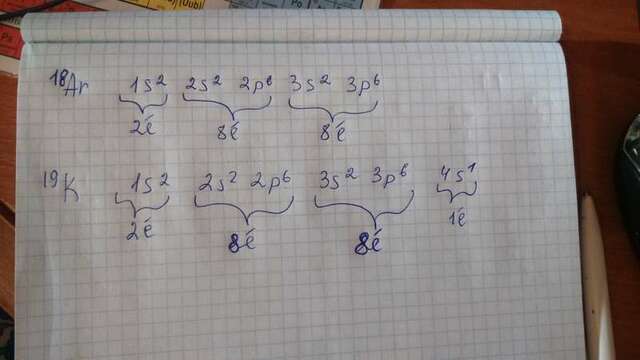 18Ar 1s² 2s² 2p⁶ 3s² 3p⁶
2ē 8ē 8ē
19K 1s² 2s² 2p⁶ 3s² 3p⁶ 4s¹
2ē 8ē 8ē 1ē